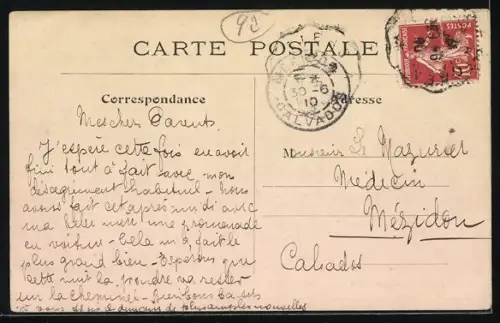 92
CARTE POSTALE
Correspondance
Adresse
30-6
10
CALVADOS
10
Mes chers Parents,
J'espère cette fois en avoir
fini tout à fait avec mon
désagrément habituel - Nous
avons fait cet après-midi avec
ma belle mère une promenade
en voiture - Cela m'a fait le
plus grand bien - Espérons que
cette nuit la poudre va rester
sur la cheminée - Bons baisers
à vous de plus amples nouvelles
Monsieur Le
Médecin
Mézidon
Calvados